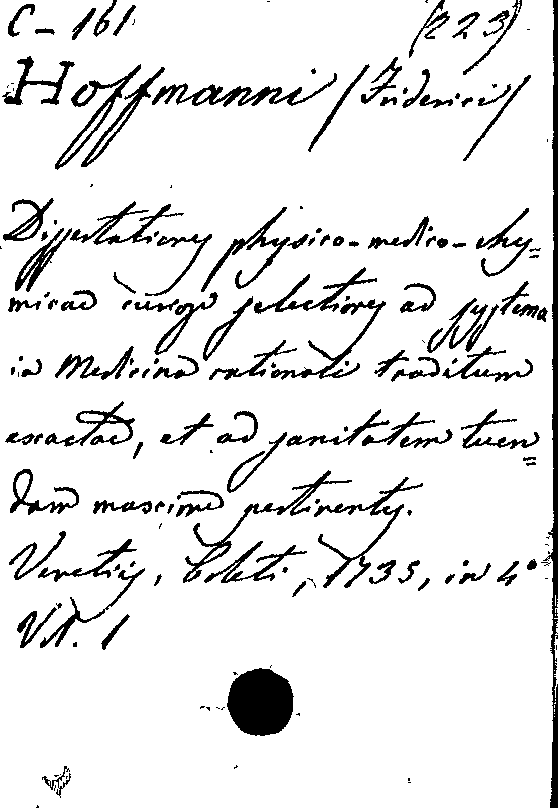 C - 161 (223)
Hoffmanni / Friderici /
Dissertationes physico-medico-chy=
micae curiose selectiores ad systema
in Medicina rationali traditum
exactae, et ad sanitatem tuen=
dam maxime pertinentes.
Venetiis, Coleti, 1735, in 4°
Vol. 1